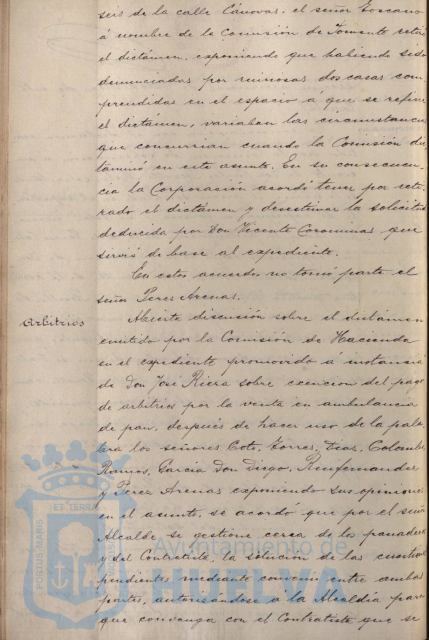 seis de la calle Cánovas. el señor Toscano
á nombre de la Comisión de Fomento retiró
el dictámen, exponiendo que habiendo sido
denunciadas por ruinosas dos casas com
prendidas en el espacio á que se refiere
el dictámen, variaban las circunstancias
que concurrian cuando la Comisión dic
taminó en este asunto. En su consecuen
cia la Corporación acordó tener por reti
rado el dictámen y desestimar la solicitud
deducida por Don Vicente Corominas que
servió de base al expediente.
En estos acuerdos no tomó parte el
señor Perez Arenas.
Arbitrios
Abierta discusión sobre el dictámen
emitido por la Comisión de Hacienda
en el expediente promovido á instancia
de Don José Riera sobre exencion del pago
de arbitrios por la venta en ambulancia
de pan, después de hacer uso de la pala
bra los señores Coto, Torres, Diaz, Colombo,
Ramos, Garcia Don Diego,
y Perez Arenas exponiendo sus opiniones
en el asunto, se acordó que por el señor
Alcalde se gestione cerca de los panaderos
y del Contratista, la solución de las cuestiones
pendientes, mediante convenio entre ambas
partes, autorizándose á la Alcaldía para
que convenga con el Contratista que se
PORTUS MARIS
ET TERRAE
Ayuntamiento de
HUELVA